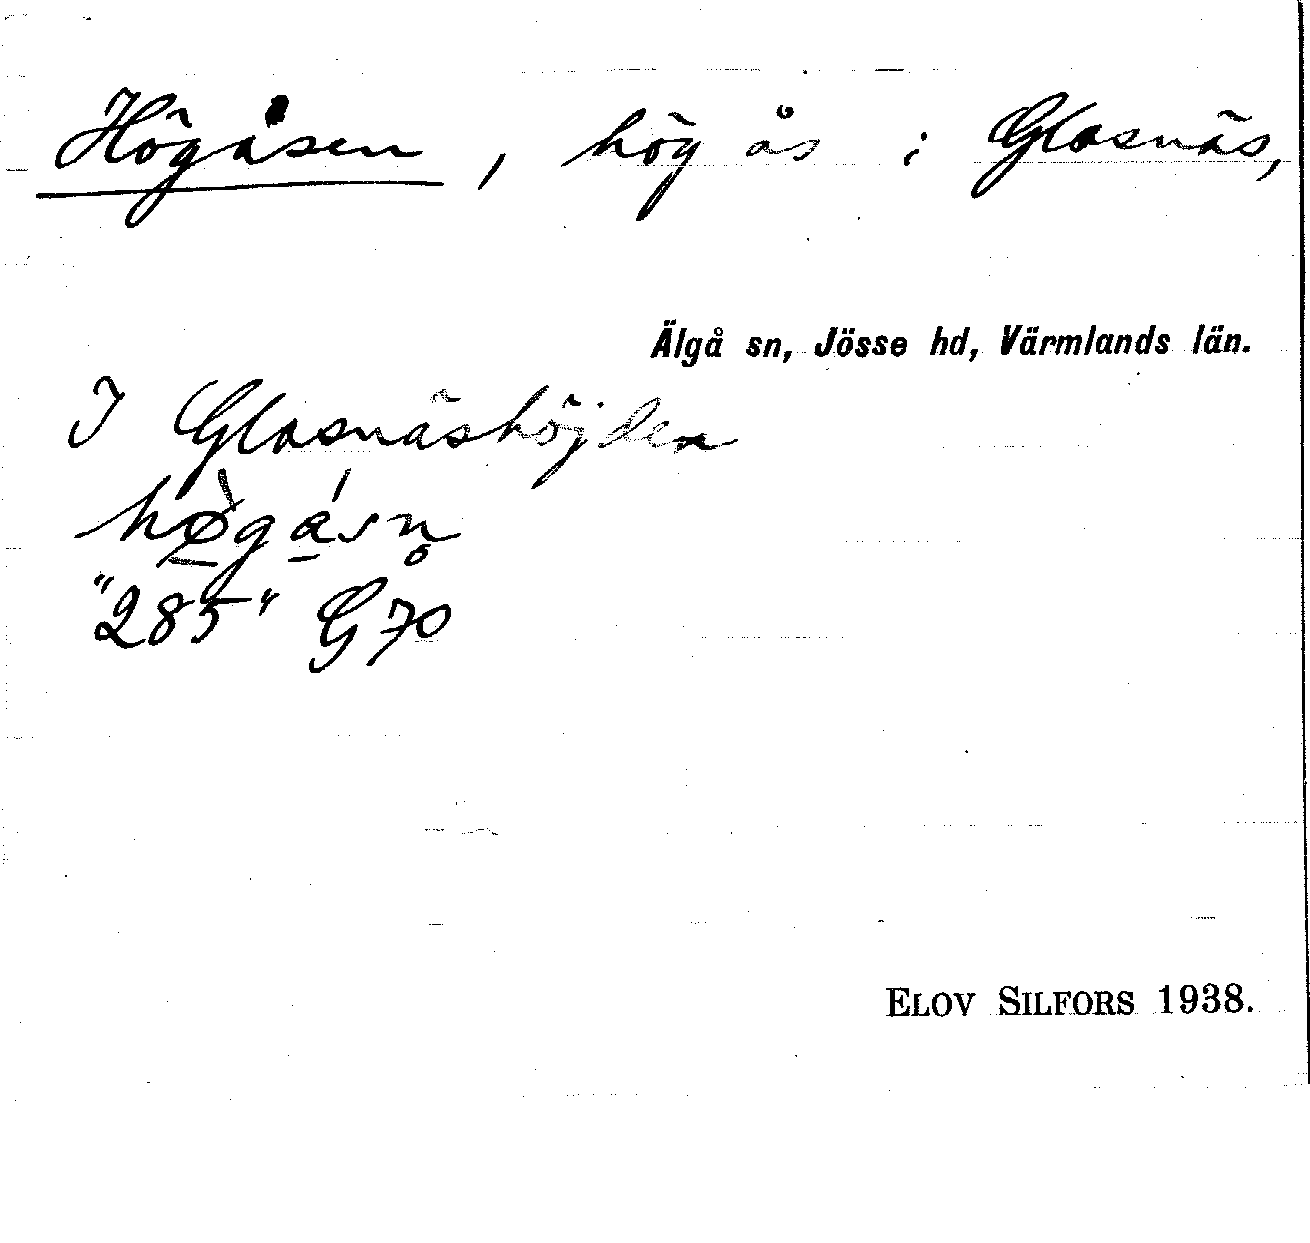 Högåsen, hög ås i Glasnäs,
Älgå sn, Jösse hd, Värmlands län.
I Glasnäshöjden
hø̠̀gá̠sn̥
"285" G70
ELOV SILFORS 1938.